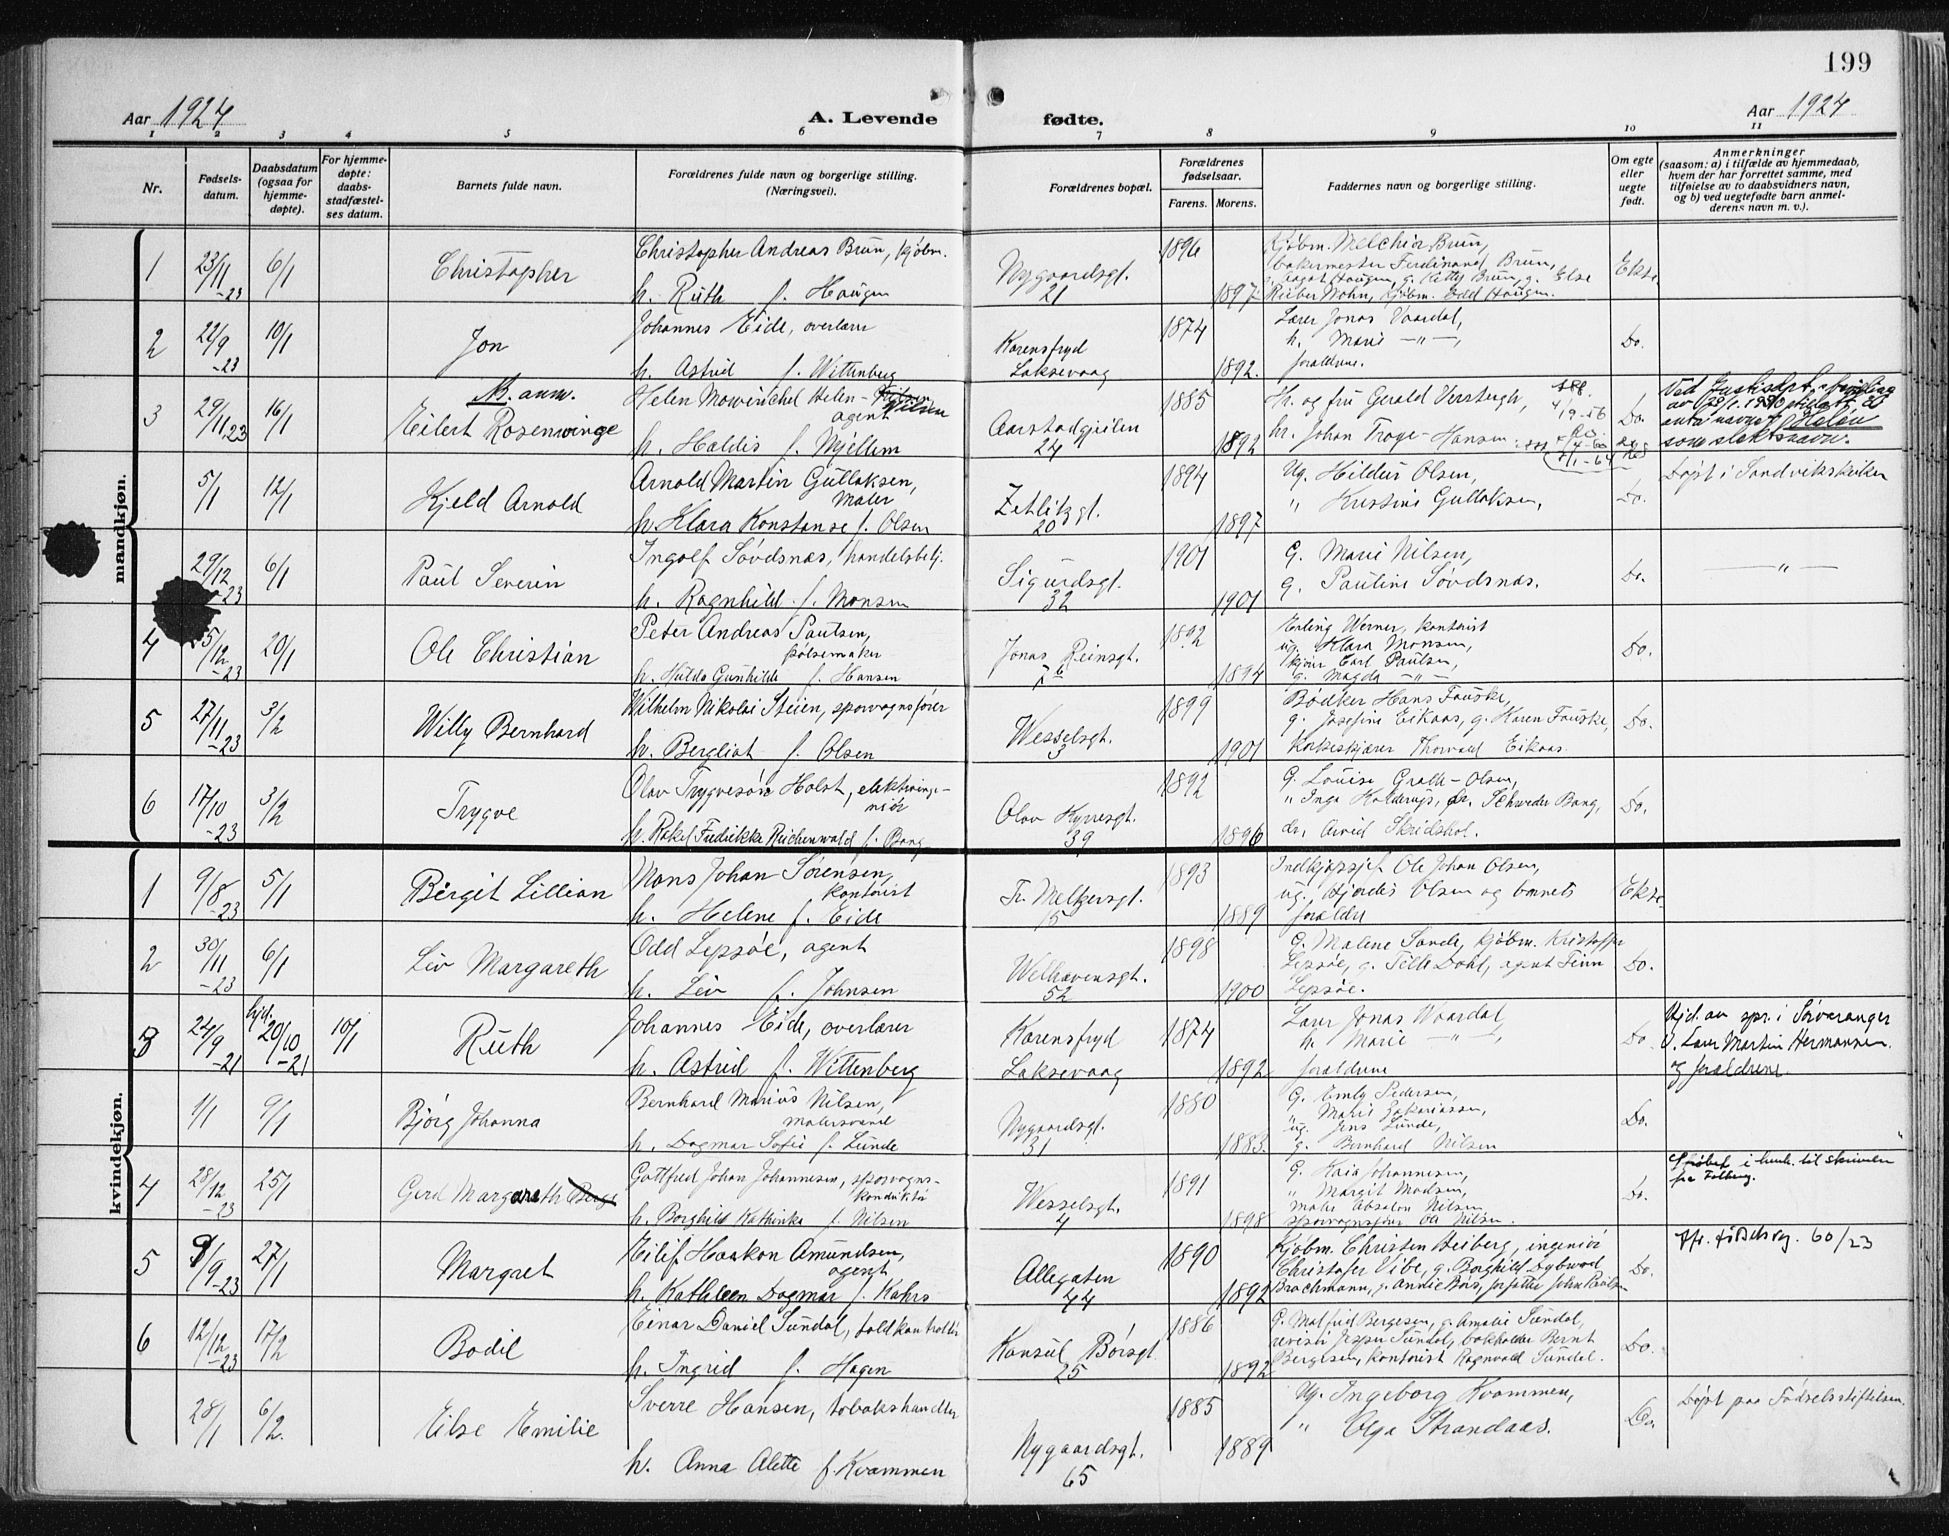 199
Aar 1924
A. Levende fødte.
Aar 1924
1 2 3 4 5 6 7 8 9 10 11
Nr.
Fødsels-
datum.
Daabsdatum
(ogsaa for
hjemme-
døpte).
For hjemme-
døpte:
daabs-
stadfæstel-
ses datum.
Barnets fulde navn.
Forældrenes fulde navn og borgerlige stilling.
(Næringsvei).
Forældrenes bopæl.
Forældrenes
fødselsaar.
Farens. Morens.
Faddernes navn og borgerlige stilling.
Om egte
eller
uegte
født.
Anmerkninger
(saasom: a) i tilfælde av hjemmedaab,
hvem der har forrettet samme, med
tilføielse av to daabsvidners navn,
og b) ved uegtefødte barn anmel-
derens navn m. v.).
mandkjøn.
1 23/11 -23 6/1 Christopher
Christopher Andreas Brun, kjøbm.
h. Ruth f. Haugen
Nygaardsgt.
21
1896
1897
Kjøbm. Melchior Brun,
bakermester Ferdinand Brun,
Haugen, g. Kitty Brun, g. Else
Rieber Mohn, kjøbm. Odd Haugen.
Ekte.
2 22/9 -23 10/1 Jon
Johannes Eide, overlærer
h. Astrid f. Wittenberg
Karensfryd
Laksevaag
1874
1892.
Lærer Jonas Vaardal,
h. Marie —"—,
forældrene.
Do.
3 29/11 23 16/1 NB. anm.
Eilert Rosenwinge
Helen Mowinchel Helen-Nilsen
agent
h. Haldis f. Mjellem
Aarstadgjeilen
24
1885
1892
Hr. og fru Gerald Verstegh,
hr. Johan Troye-Hansen
4/9-56
Do.
Ved Justisdept. bevilling
anta navnet Helén
som slektsnavn.
5/1 12/1 Kjeld Arnold
Arnold Martin Gullaksen,
maler
h. Klara Konstanse f. Olsen
Zetlitzgt.
20
1894
1897
Ug. Hildur Olsen,
" Kristine Gullaksen,
Do.
Døpt i Sandvikskirken
29/12 -23 6/1 Paul Severin
Ingolf Søvdsnæs, handelsbetj.
h. Ragnhild f. Monsen
Sigurdsgt.
32
1901
1901
G. Marie Nilsen,
g. Pauline Søvdsnæs.
Do.
—"—
4 25/12 -23 20/1 Ole Christian
Peter Andreas Paulsen,
pølsemaker
h. Hulda Gunhilde f. Hansen
Jonas Reinsgt.
1892
1894
Erling Werner, kontorist
ug. Klara Monsen,
Carl Paulsen,
g. Magda —"—
Do.
5 27/11 -23 3/2 Willy Bernhard
Wilhelm Nikolai Steien, sporvognsfører
h. Bergliot f. Olsen
Wesselsgt.
3
1899
1901
Bødker Hans Fauske,
g. Josefine Eikaas, g. Karen Fauske,
Korkeskjærer Thorvald Eikaas.
Do.
6 17/10 -23 3/2 Trygve
Olav Trygvesøn Holst, elektroinge-
niør
h. Rakel Fredrikke Reichenwald f. Bang
Olav Kyrresgt.
39
1892
1896
G. Louise Grath-Olsen,
" Inga Schweder Bang,
dr. Arvid Skridshol.
Do.
kvindekjøn.
1 9/8 -23 5/1 Birgit Lillian
Mons Johan Sørensen,
kontorist
h. Helene f. Eide
Fr. Meltzersgt.
15
1893
1889
Indkjøpssjef Ole Johan Olsen,
ug. Hjørdis Olsen og barnets
forældre
Ekte.
2 30/11 -23 6/1 Liv Margareth
Odd Lepsøe, agent
h. Liv f. Johnsen
Welhavensgt.
52
1898
1900
G. Malene Sande, kjøbm. Kristoffer
Lepsøe, g. Tille Dahl, agent Finn
Lepsøe.
Do.
3 24/9 -21 hjd. 20/10 -21 10/1 Ruth
Johannes Eide, overlærer
h. Astrid f. Wittenberg
Karensfryd
Laksevaag
1874
1892
Lærer Jonas Vaardal,
h. Marie —"—,
forældrene
Do.
Hjd. av spr. i Sørvaranger
V. Lærer Martin Hermansen
og forældrene.
1/1 9/1 Bjørg Johanna
Bernhard Marius Nilsen,
malersvend
h. Dagmar Sofie f. Lunde
Nygaardsgt.
31
1880
1883.
G. Emly Pedersen,
" Marie Zakariassen,
ug. Jens Lunde,
g. Bernhard Nilsen
Do.
4 28/12 -23 25/1 Gerd Margareth Berge
Gottfred Johan Johannesen, sporvogns-
konduktør
h. Borghild Kathinka f. Nilsen
Wesselsgt.
4
1891
1898
G. Kaia Johannesen,
" Margit Madsen,
maler Absalon Nilsen
sporvognsfører Ole Nilsen.
Do.
5 9/9 -23 27/1 Margret
Eilif Haakon Amundsen,
agent
h. Kathleen Dagmar f. Kahrs
Allegaten
44
1890
1892
Kjøbm. Christen Heiberg, ingeniør
Christofer Vibe, g. Borghild Dybwad
Brochmann, g. Annie Børs,
Do.
Jfr. fødselsreg. 60/23
6 12/12 -23 17/2 Bodil
Einar Daniel Sundal, toldkontrollør
h. Ingrid f. Hagen
Konsul Børsgt
25
1886
1892
G. Malfrid Bergesen, g. Amalie Sundal,
revisor Jesper Sundal, bokholder Bernt
Bergesen, kontorist Ragnvald Sundal.
Do.
28/1 6/2. Else Emilie
Sverre Hansen, tobakshandler
h. Anna Alette f. Kvammen
Nygaardsgt.
65
1885
1889
Ug. Ingeborg Kvammen,
" Olga Strandaas.
Do.
Døpt paa Fødselsstiftelsen.